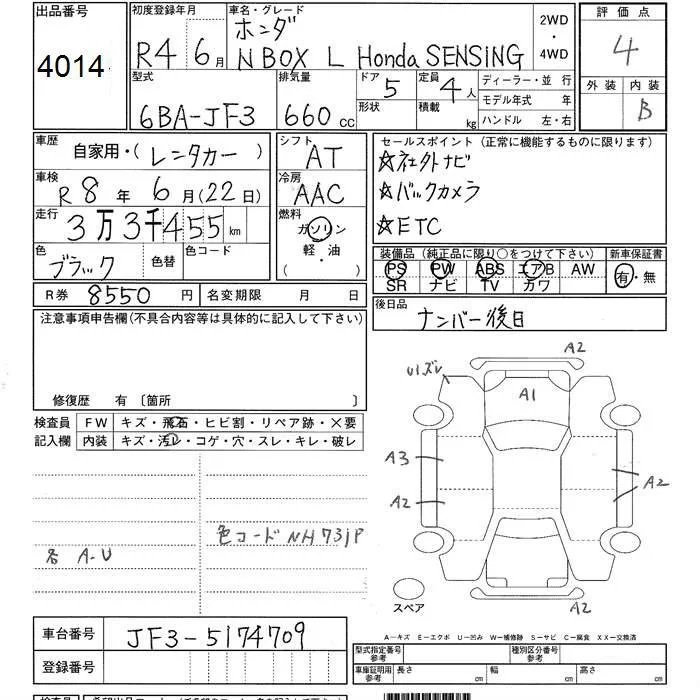 出品番号 4014
初度登録年月 R4 6月
車名・グレード ホンダ
N BOX L Honda SENSING
2WD
・
4WD
評価点 4
外装 内装 B
型式 6BA-JF3
排気量 660 cc
ドア 5
形状
定員 4人
積載 kg
ディーラー・並 行
モデル年式 年
ハンドル 左・右
車歴 自家用・(レンタカー)
車検 R 8年 6月(22日)
走行 3万3千455 km
色 ブラック 色替
色コード
シフト AT
冷房 AAC
燃料 ガソリン
軽・油
( ・ )
セールスポイント (正常に機能するものに限ります)
☆社外ナビ
☆バックカメラ
☆ETC
装備品 (純正品に限り○をつけて下さい)
PS PW ABS エアB AW
SR ナビ TV カワ
新車保証書
有・無
R券 8550円 名変期限 月 日
後日品
ナンバー後日
注意事項申告欄(不具合内容等は具体的に記入して下さい)
修復歴 有 〔箇所 〕
検査員
記入欄
FW キズ・飛石・ヒビ割・リペア跡・×要
内装 キズ・汚レ・コゲ・穴・スレ・キレ・破レ
各 A-U
色コード NH731P
A2
A1
A3
A2
A2
A2
スペア
A―キズ E―エクボ U―凹み W―補修跡 S―サビ C―腐食 XX―交換済
車台番号 JF3-5174709
登録番号
型式指定番号
参考
種別区分番号
参考
車庫証明用
参考
長さ cm 幅 cm 高さ cm